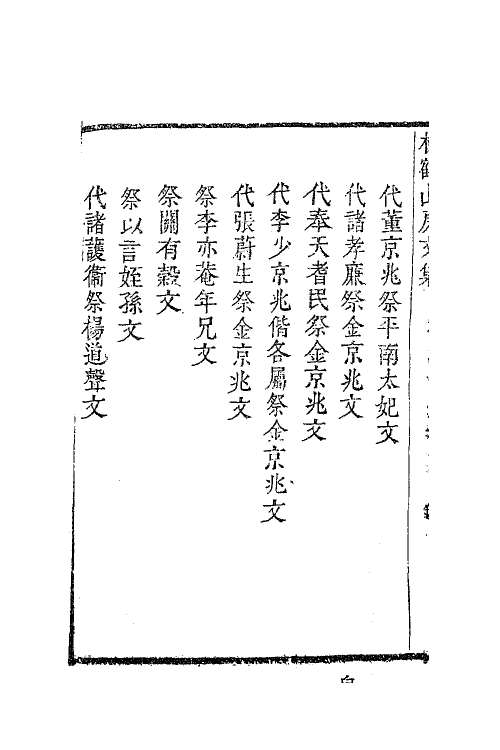 山房文集
代董京兆祭平南太妃文
代諸孝廉祭金京兆文
代奉天耆民祭金京兆文
代李少京兆偕各屬祭金京兆文
代張蔚生祭金京兆文
祭李亦菴年兄文
祭關有穀文
祭以言姪孫文
代諸護衞祭楊道聲文